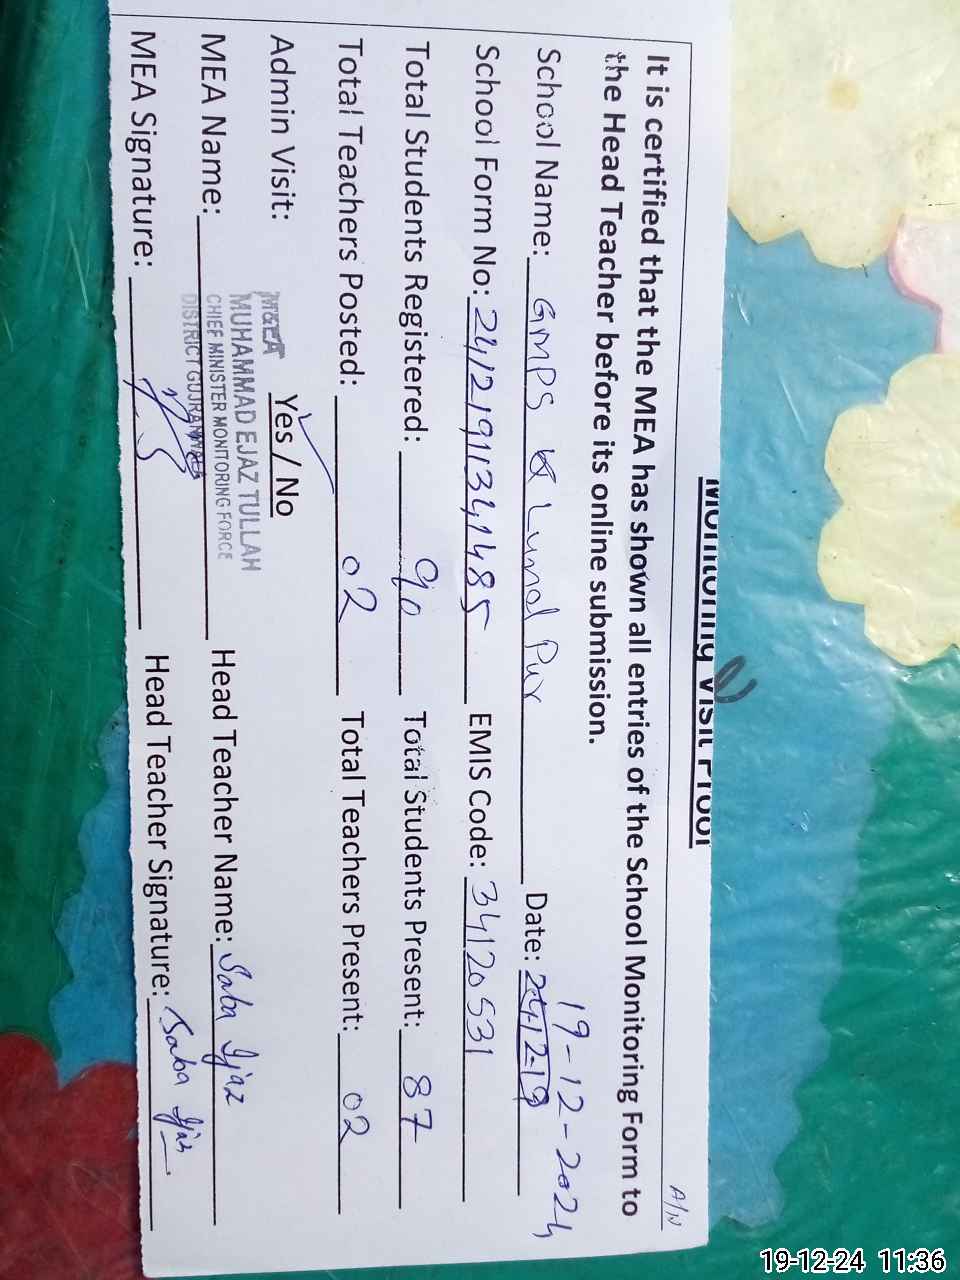 Monitoring Visit Proof
A/N
It is certified that the MEA has shown all entries of the School Monitoring Form to
the Head Teacher before its online submission.
19-12-2024
School Name: GMPS Lund Pur Date: 24-12-19
School Form No: 2412191341485 EMIS Code: 34120531
Total Students Registered: 90 Total Students Present: 87
Total Teachers Posted: 02 Total Teachers Present: 02
Admin Visit: Yes / No
M&EA
MUHAMMAD EJAZ TULLAH
CHIEF MINISTER MONITORING FORCE
DISTRICT GUJRANWALA
MEA Name: Head Teacher Name: Saba Ijaz
MEA Signature: Head Teacher Signature: Saba Ijaz
19-12-24 11:36